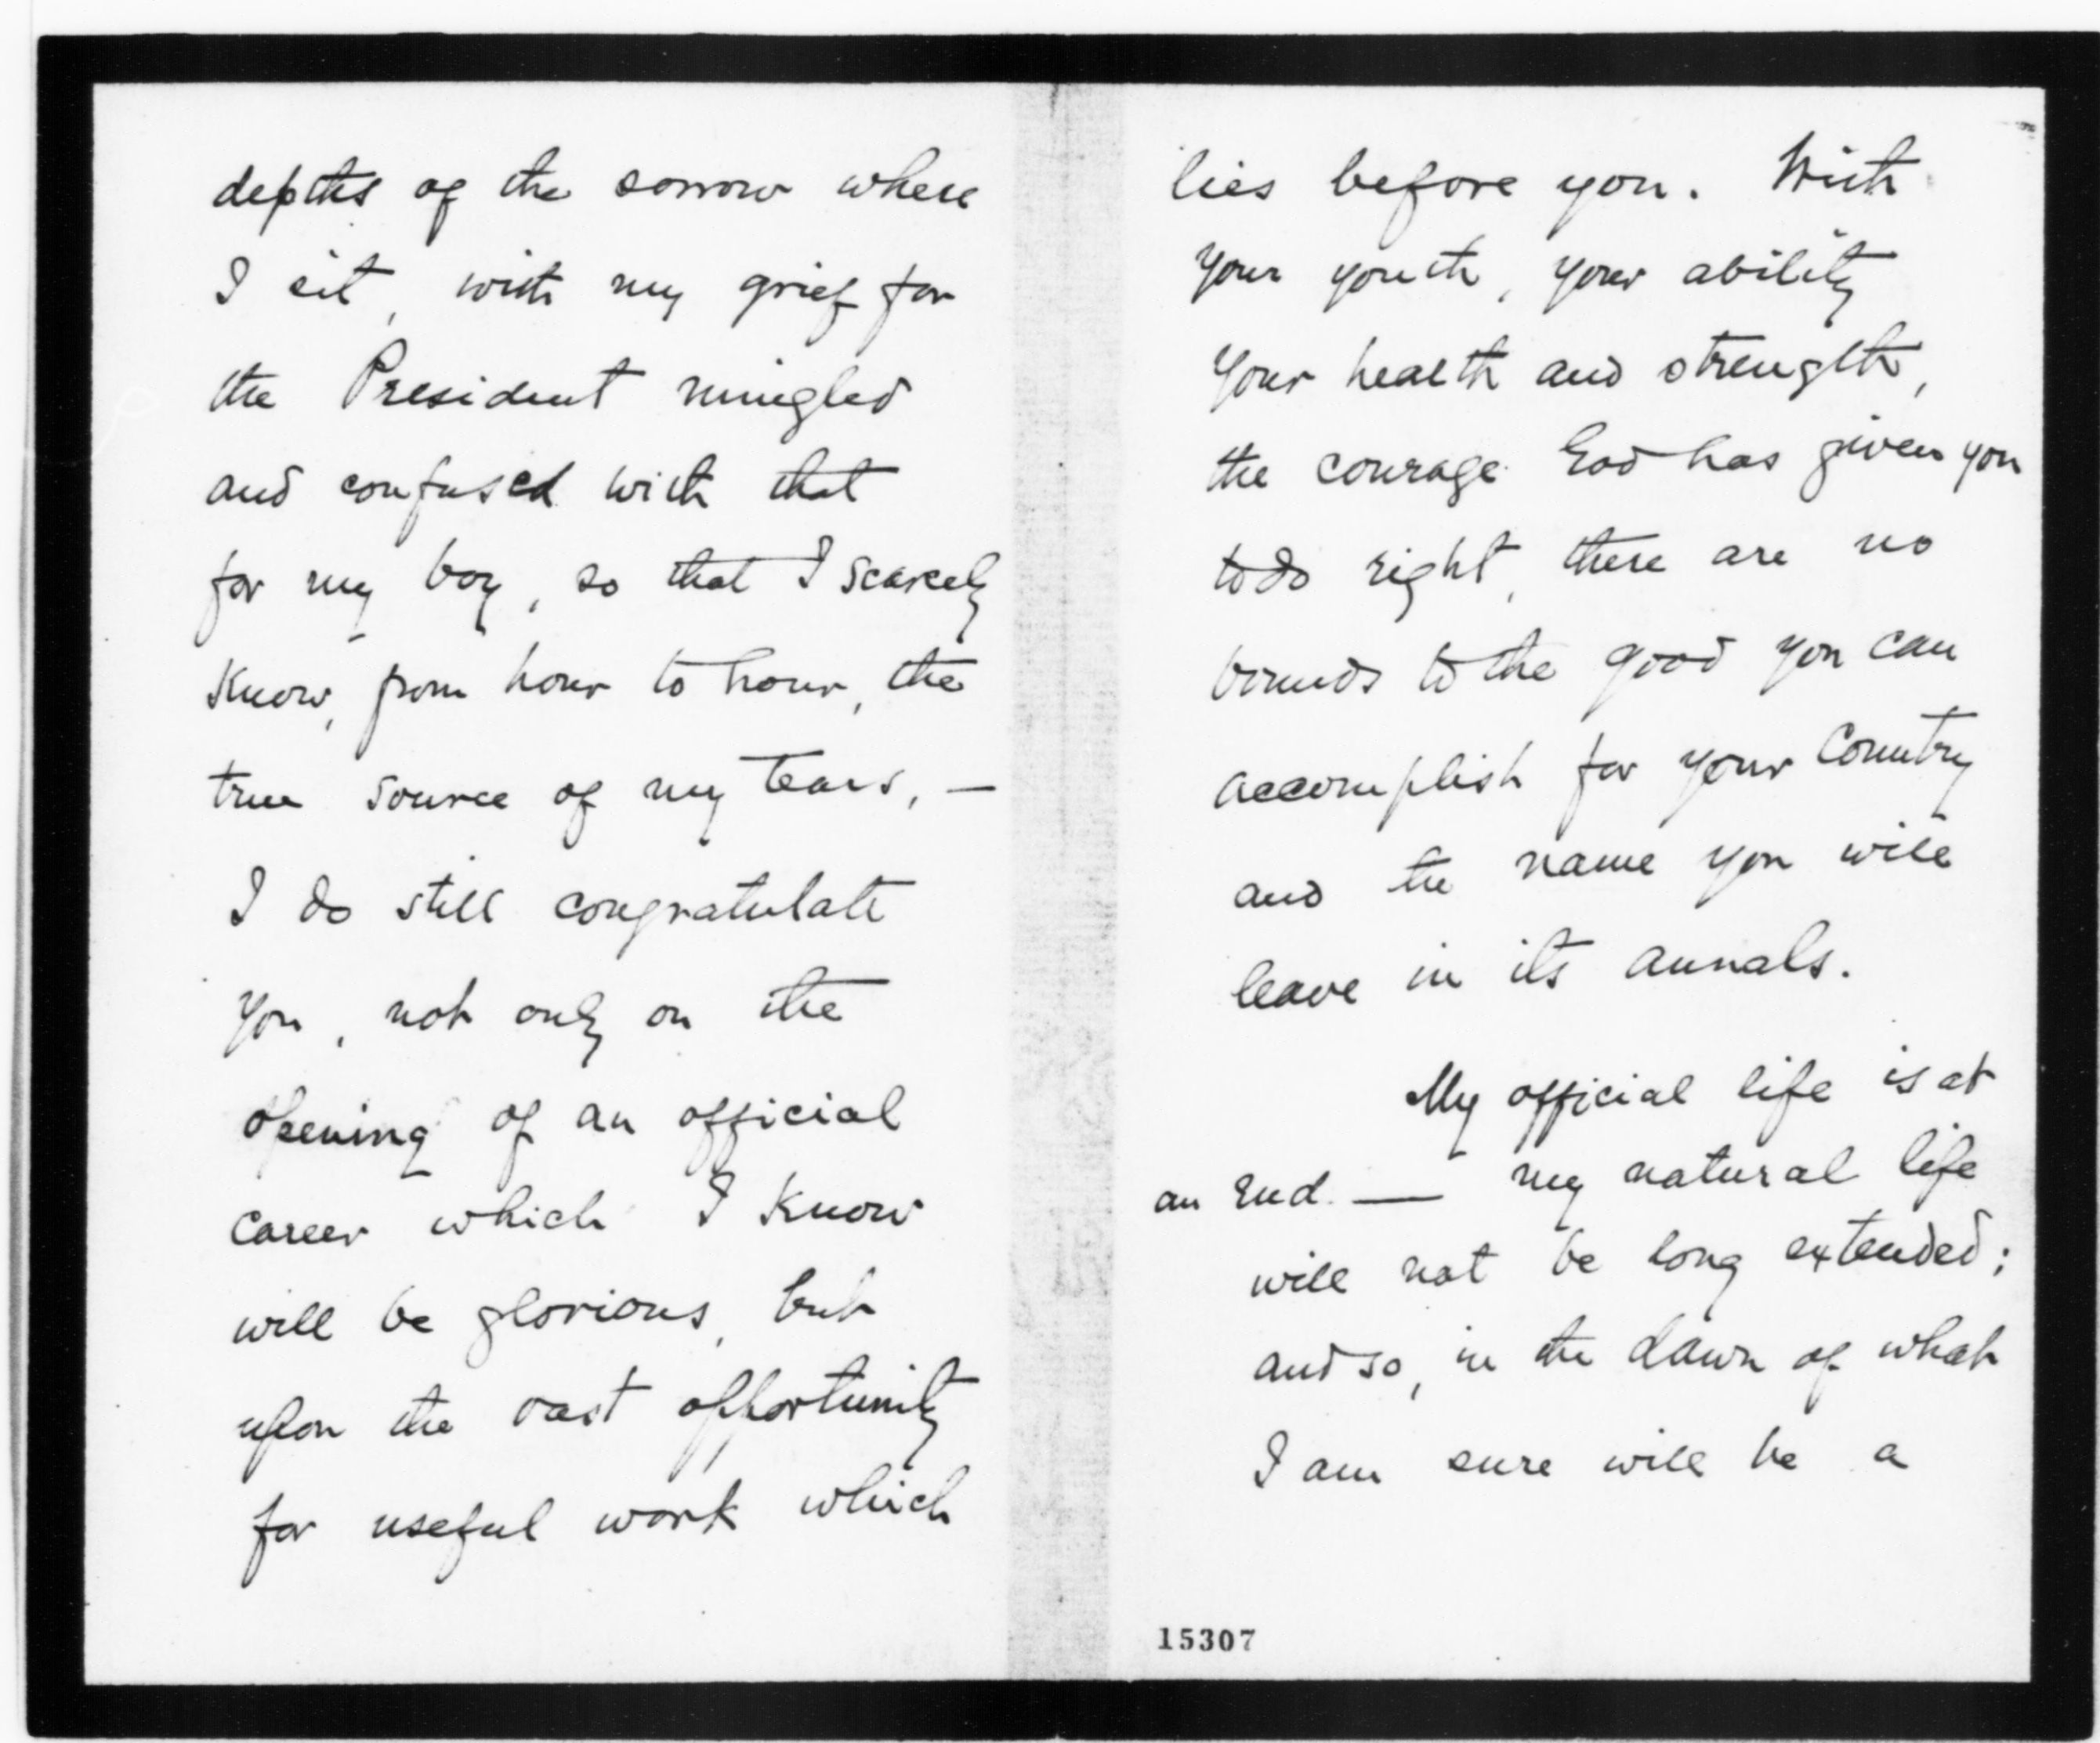 depths of the sorrow where
I sit, with my grief for
the President mingled
and confused with that
for my boy, so that I scarcely
know, from hour to hour, the
true source of my tears, —
I do still congratulate
you, not only on the
opening of an official
career which I know
will be glorious, but
upon the vast opportunity
for useful work which
lies before you. With
your youth, your ability
your health and strength,
the courage God has given you
to do right, there are no
bounds to the good you can
accomplish for your country
and the name you will
leave in its annals.
My official life is at
an end — my natural life
will not be long extended;
and so, in the dawn of what
I am sure will be a
15307